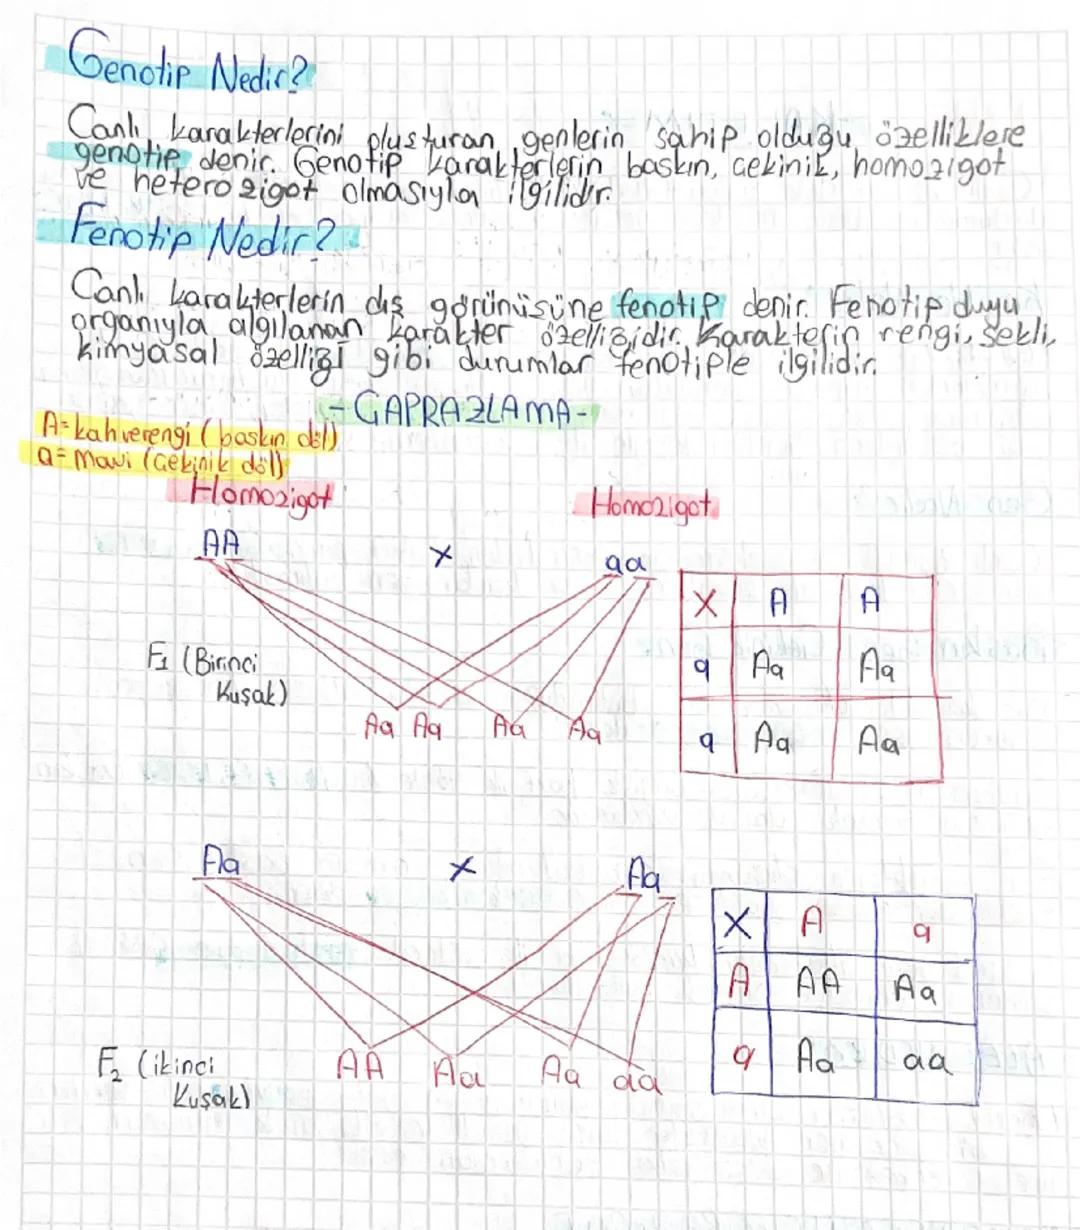 Genotip Nedir?
Canlı karakterlerini oluşturan genlerin sahip olduğu özelliklere
genotip denir. Genotip karakterlerin baskın, çekinik, homozigot
ve heterozigot olmasıyla ilgilidir.
Fenotip Nedir?
Canlı karakterlerin dış görünüşüne fenotip denir. Fenotip duyu
organıyla algılanan karakter özelliğidir. Karakterin rengi, şekli,
kimyasal özelliği gibi durumlar fenotiple ilgilidir.
-ÇAPRAZLAMA-
A=kahverengi (baskın döl)
a=Mavi (Çekinik döl)
Homozigot Homozigot
AA x aa
X A A
a Aa Aa
a Aa Aa
F1 (Birinci
Kuşak)
Aa Aa Aa Aa
Aa x Aa
X A a
A AA Aa
a Aa aa
F2 (ikinci
Kuşak)
AA Aa Aa aa